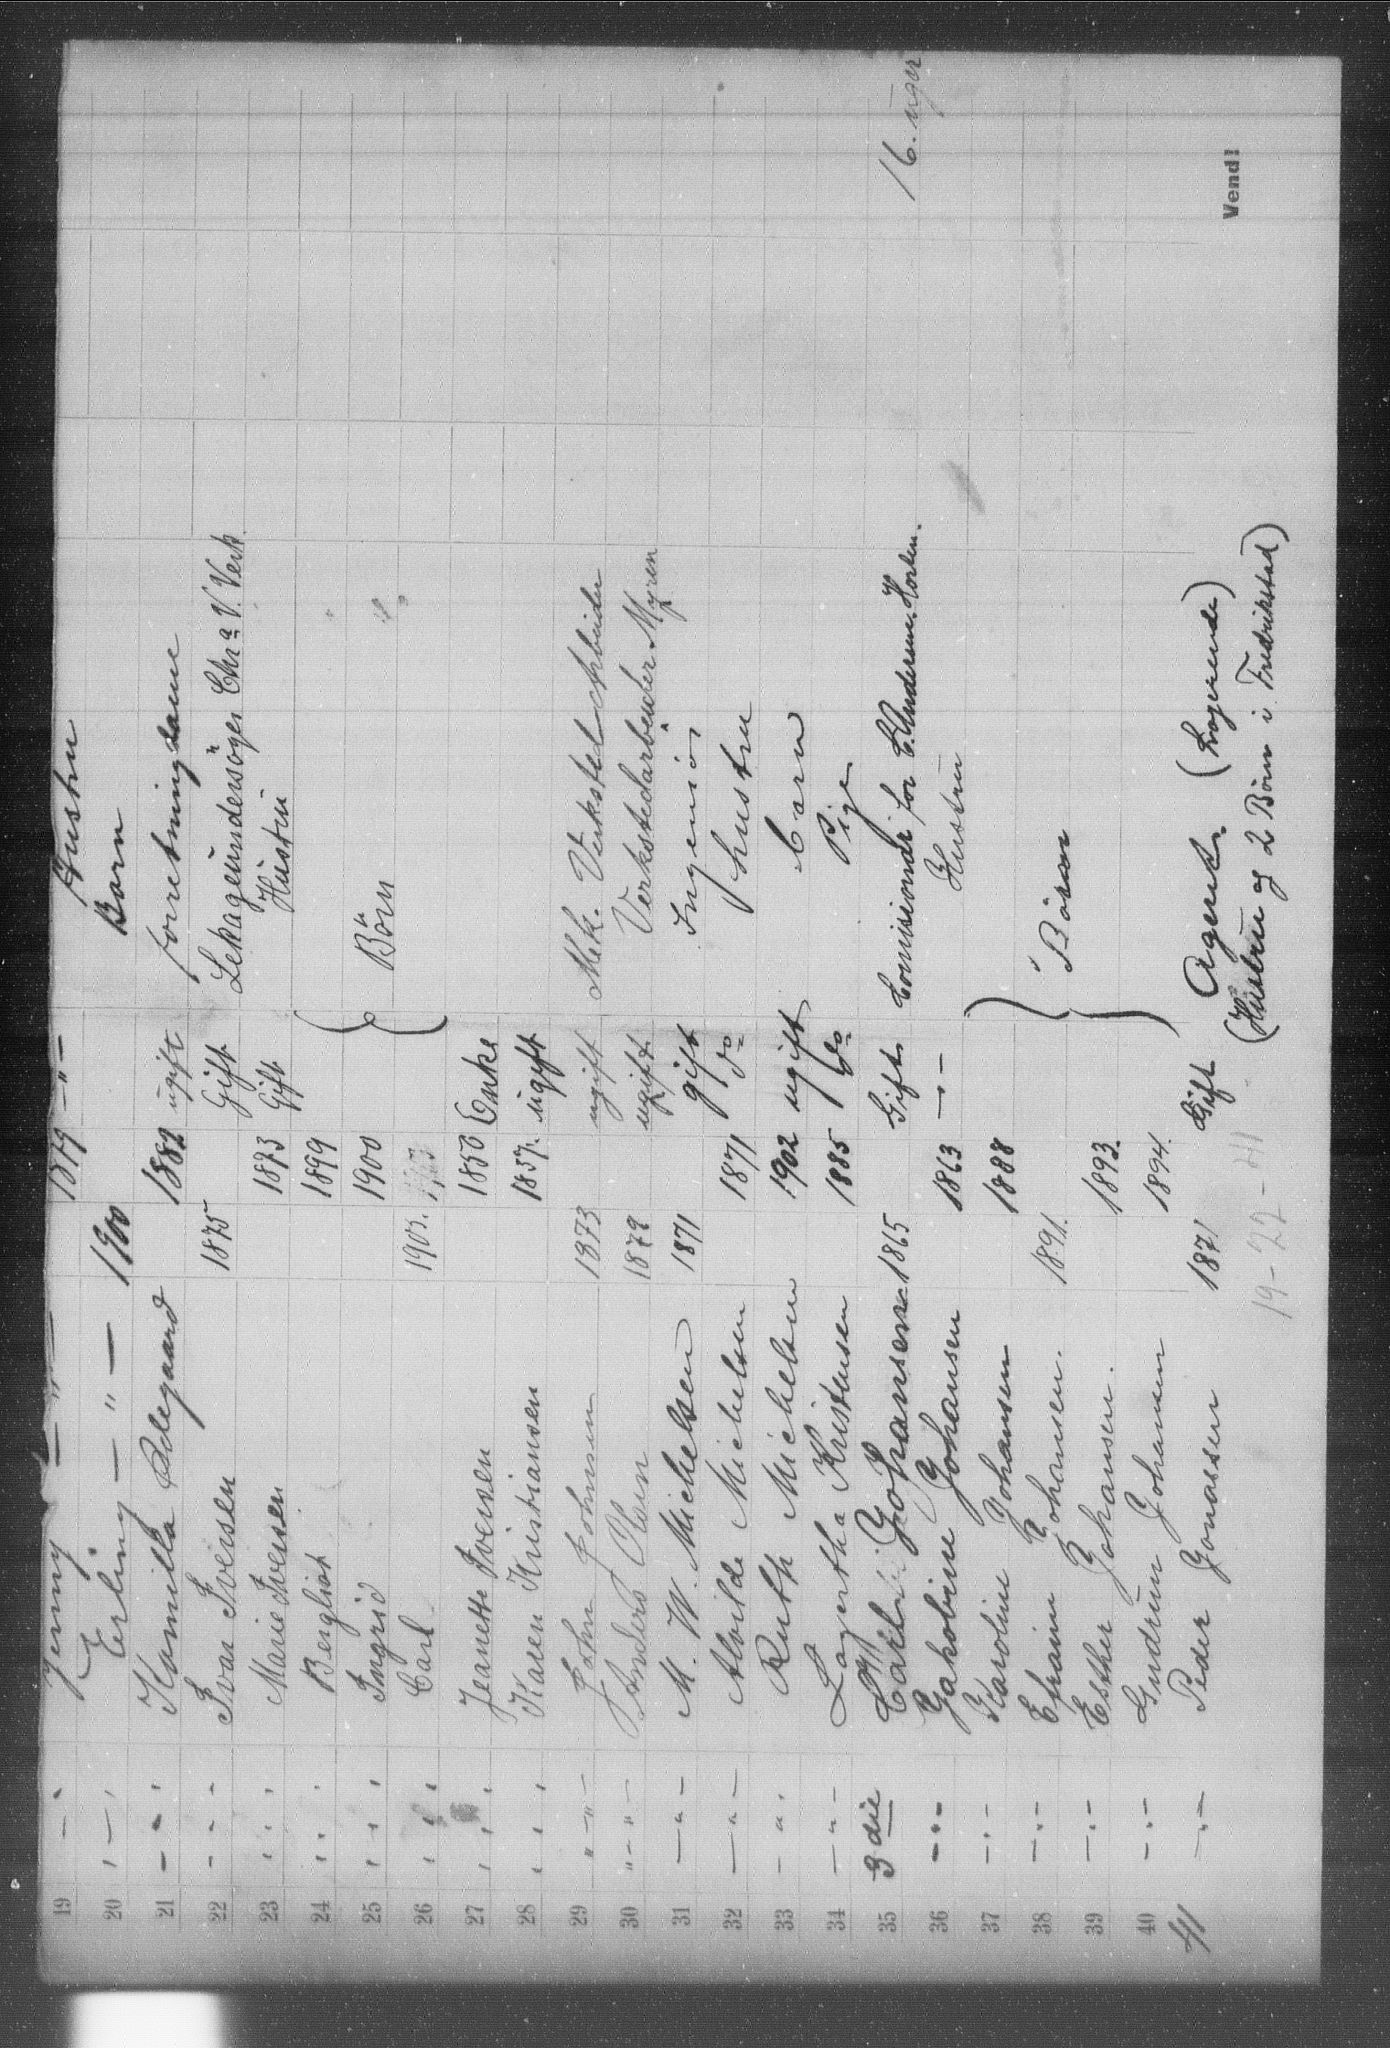 19 — " Jenny — " — 1879 — " — Hustru
20 " — " Erling — " — 1900 Barn
21 — - " Kamilla Ødegaard 1882 ugift forretningsdame
22 — - - Ivar Iversen 1875 Gift Chr.a V. Verk.
23 " " " Marie Iversen 1873 Gift Hustru
24 " " " Bergliot 1899
25 " " " Ingrid 1900 } Börn
26 " " " Carl 1903.
27 " " " Jeanette Iversen 1850 Enke
28 " " " Karen Kristiansen 1857. ugift
29 " — " — John Johnsen 1873 ugift Mek. Verksted Arbeider
30 " — " — Anders Olsen 1879 ugift Verkstedarbeider Myren
31 — " — M. W. Michelsen 1871 gift Ingeniör
32 — " — Alvilde Michelsen 1871 do hustru
33 — " " Ruth Michelsen 1902 ugift barn
34 — " — Lagertha Kristensen 1885 do Pige
35 3 die Carl Johansen 1865 Gift. Comisionær for C. Andersen. Horten. 16. uger
36 — " — Jakobine Johansen 1863 — " — Hustru
37 — " — Karoline Johansen 1888
38 — " — Efraim Johansen. 1891. } Börn
39 — " — Esther Johansen. 1893.
40 — " — Gudrun Johansen 1894.
41 — " — Peder Jonassen 1871 Gift Agent. (Logerende)
(Hustru og 2 Börn i Fredrikstad)
19 - 22 - 41
Vend!